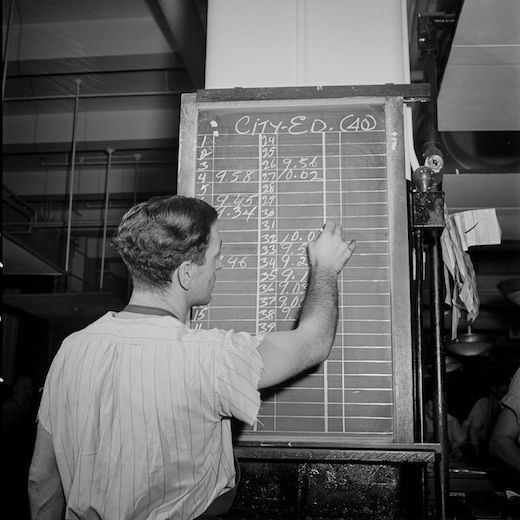 CITY-ED. (40)
1 24
2 25
3 26 9.56
4 9.58 27 10.02
5 28
9.45 29
9.54 30
31
32 10.0
33 9.5
46 34 9.2
25 9.1
36 9.0
37 9.0
15 38 9.
39